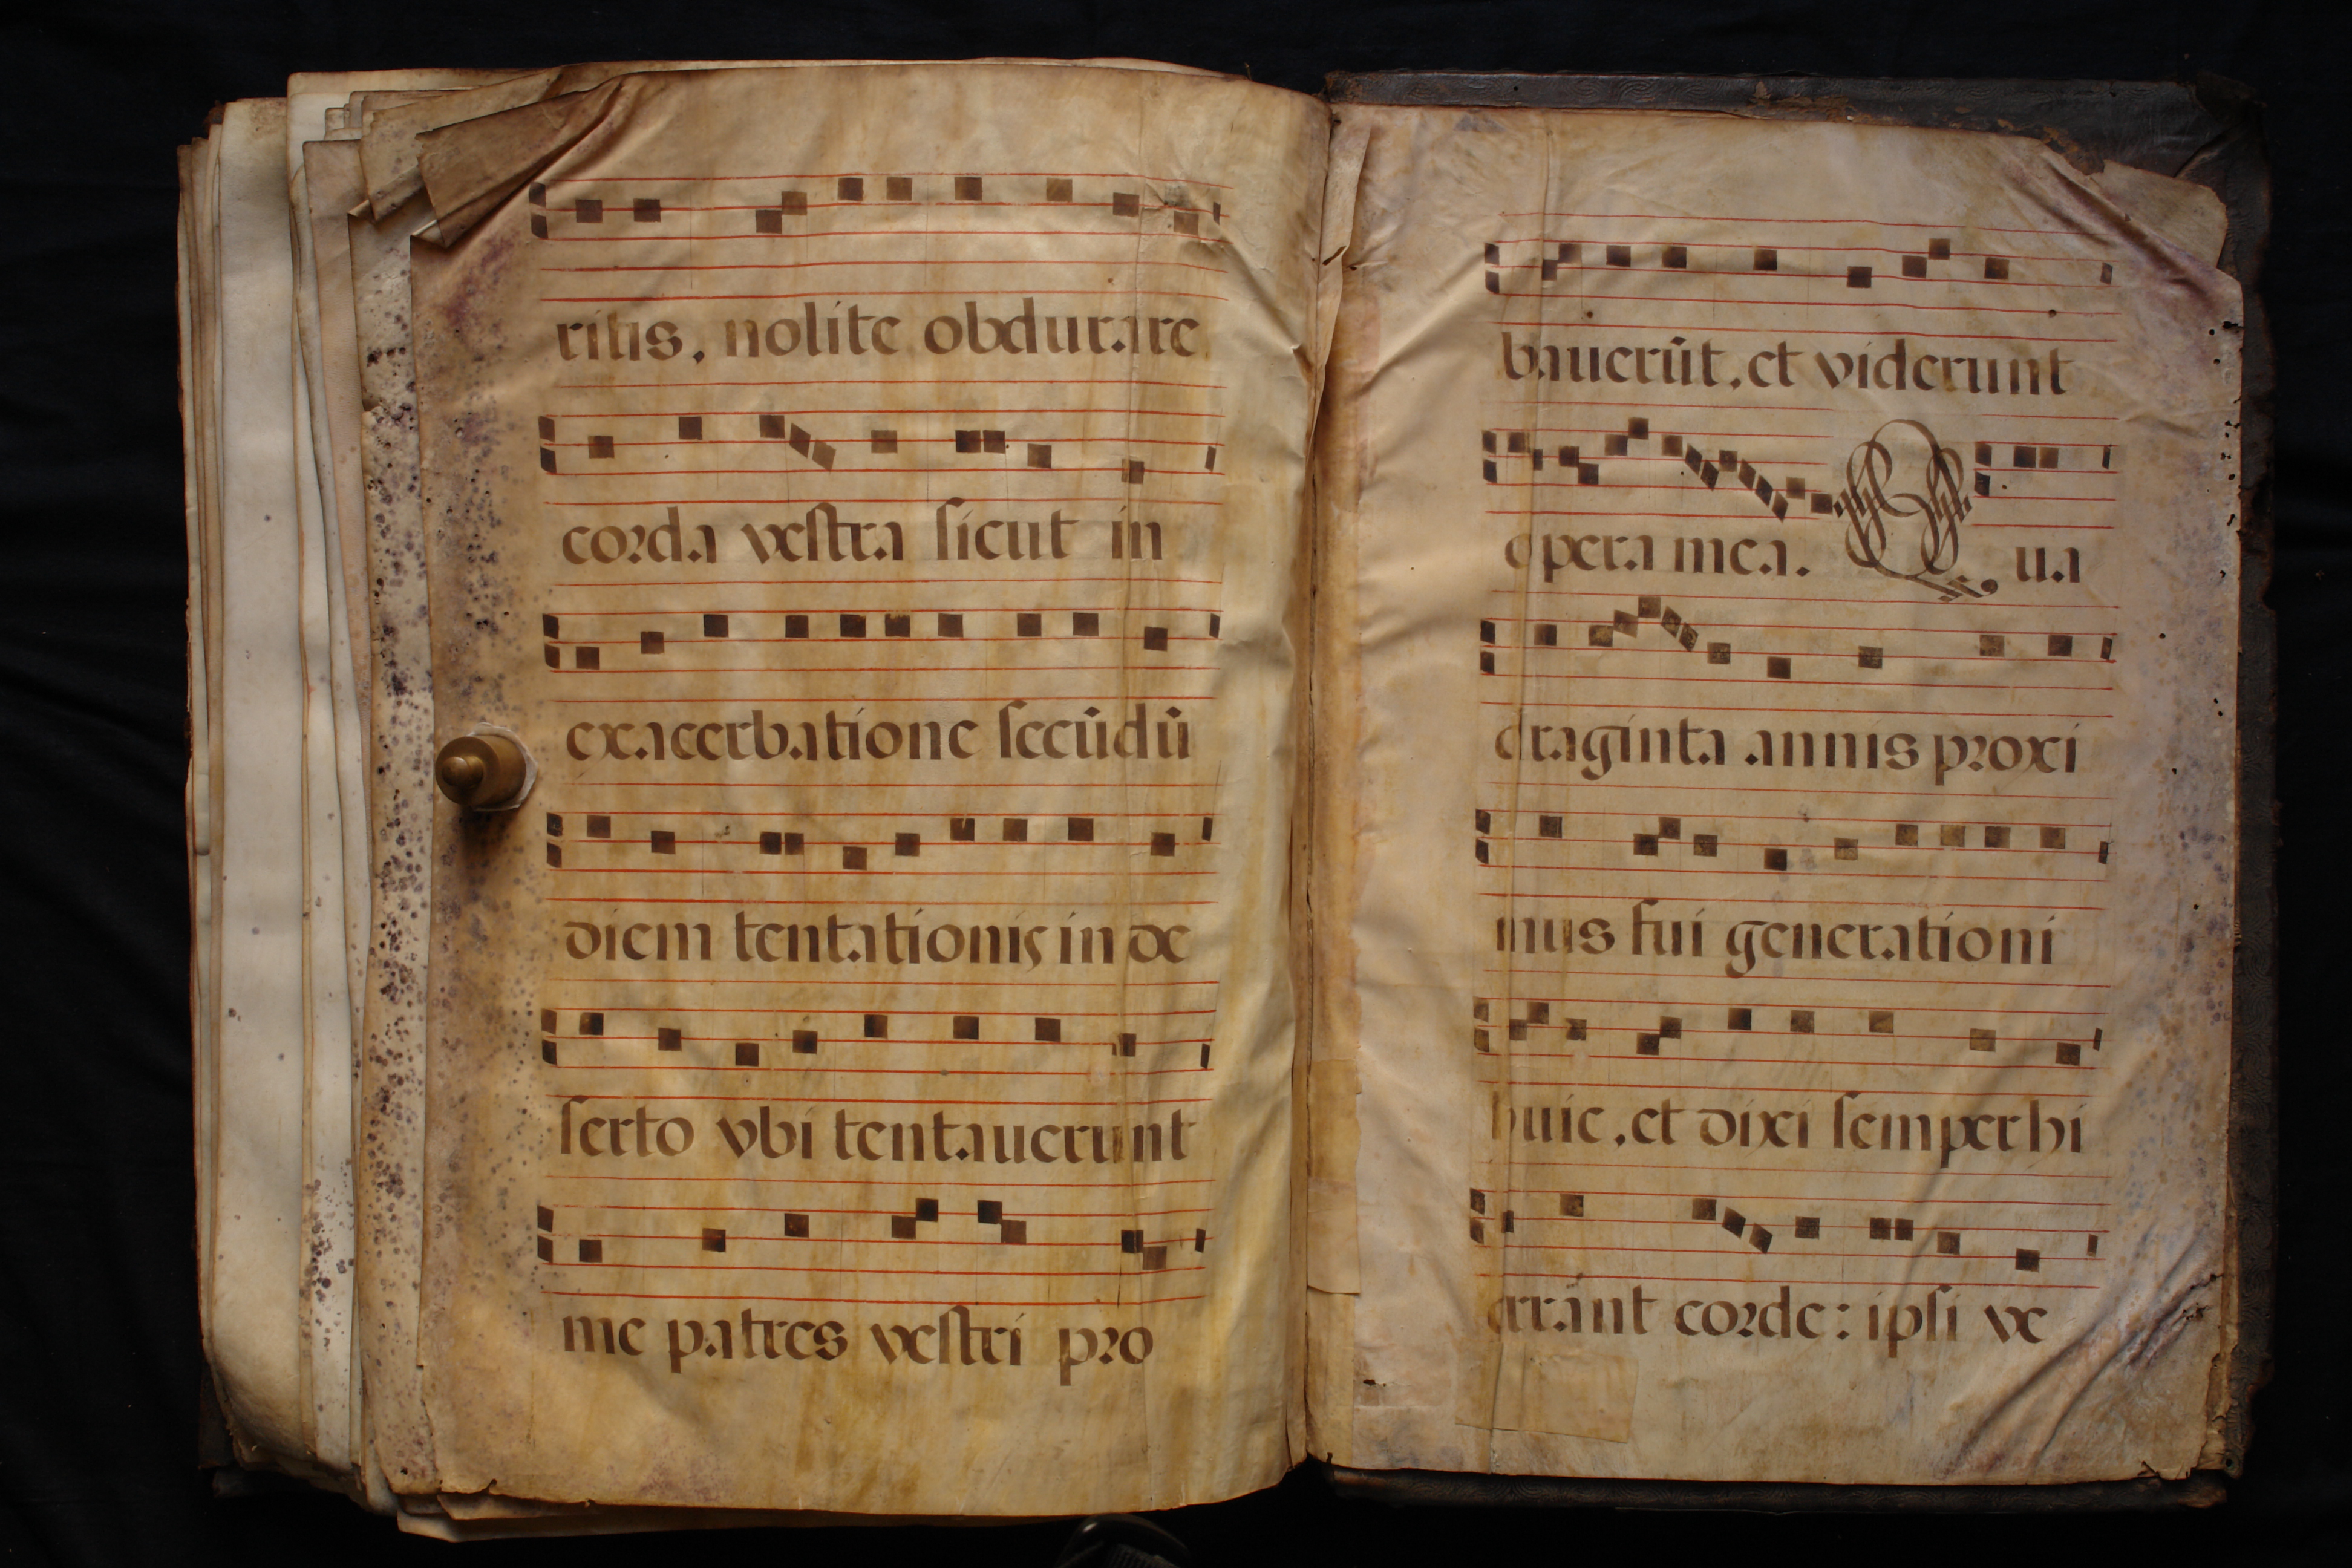 ritis, nolite obdurare
corda vestra sicut in
exacerbatione secūdū
diem tentationis in de
serto vbi tentauerunt
me patres vestri pro
bauerūt, et viderunt
opera mea. Qua
draginta annis proxi
mus fui generationi
huic, et dixi semper hi
errant corde: ipsi ve